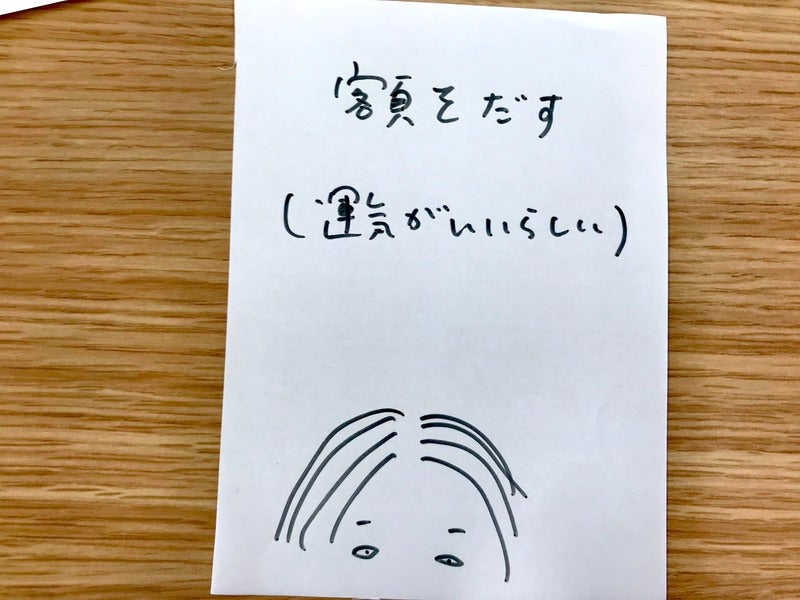 額をだす
（運気がいいらしい）